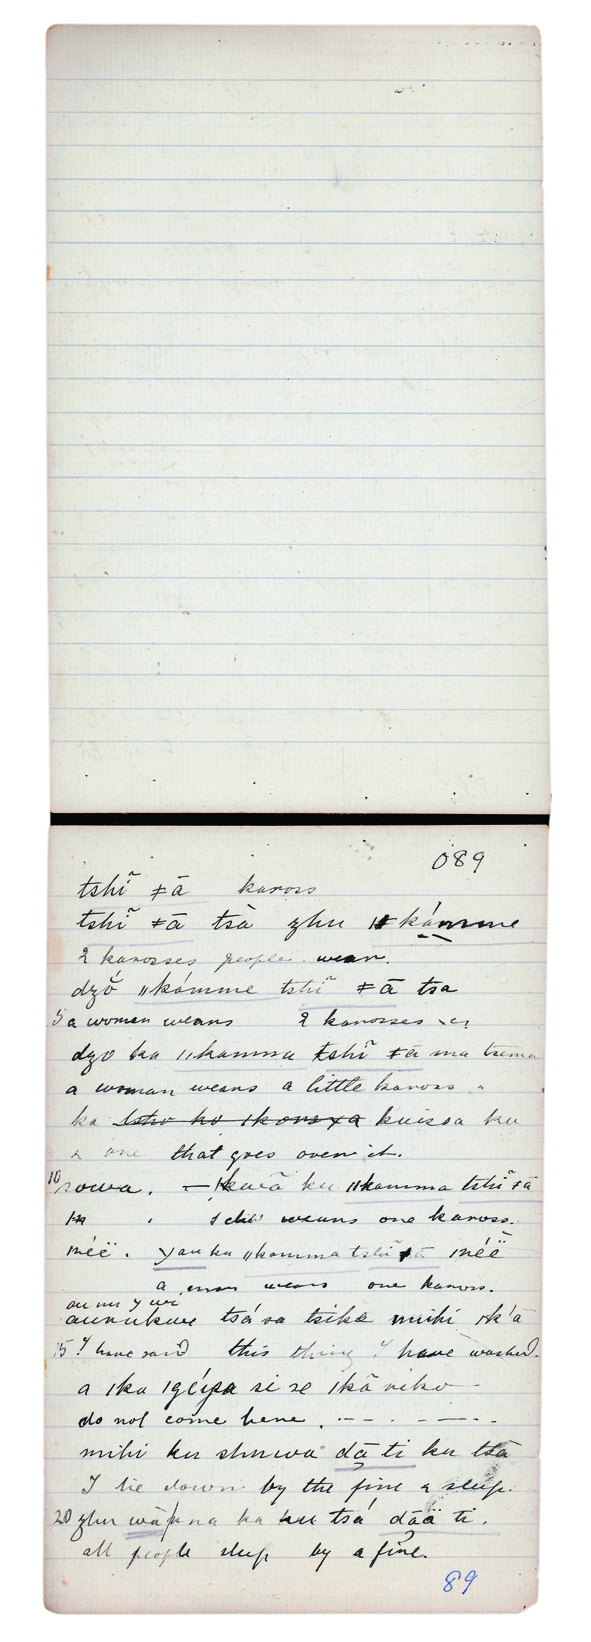 089
tshĩ ǂā kaross
tshĩ ǂā tsà zhu ǁkámme
2 karosses people wear.
dzŏ ǁkámme tshĩ ǂā tsa
5 a woman wears 2 karosses
dzo ka ǁkamma tshĩ ǂā ma tsema
a woman wears a little kaross
ka kuissa ku
one that goes over it.
10 sowa. — ku ǁkamma tshĩ ǂā
wears one kaross.
ǀnéë. yau ku ǁkamma tshĩ ǂā ǀnéë
a man wears one kaross.
tsá sa tsike mihi ǀk'á
15 I have said this thing I have washed.
a ǀka si se ǀkā neho -
do not come here. - - . - - -
mihi ku shuwa dā ti ku tsā
I lie down by the fire & sleep.
20 zhu na ka ku tsá dāä ti.
all people sleep by a fire.
89